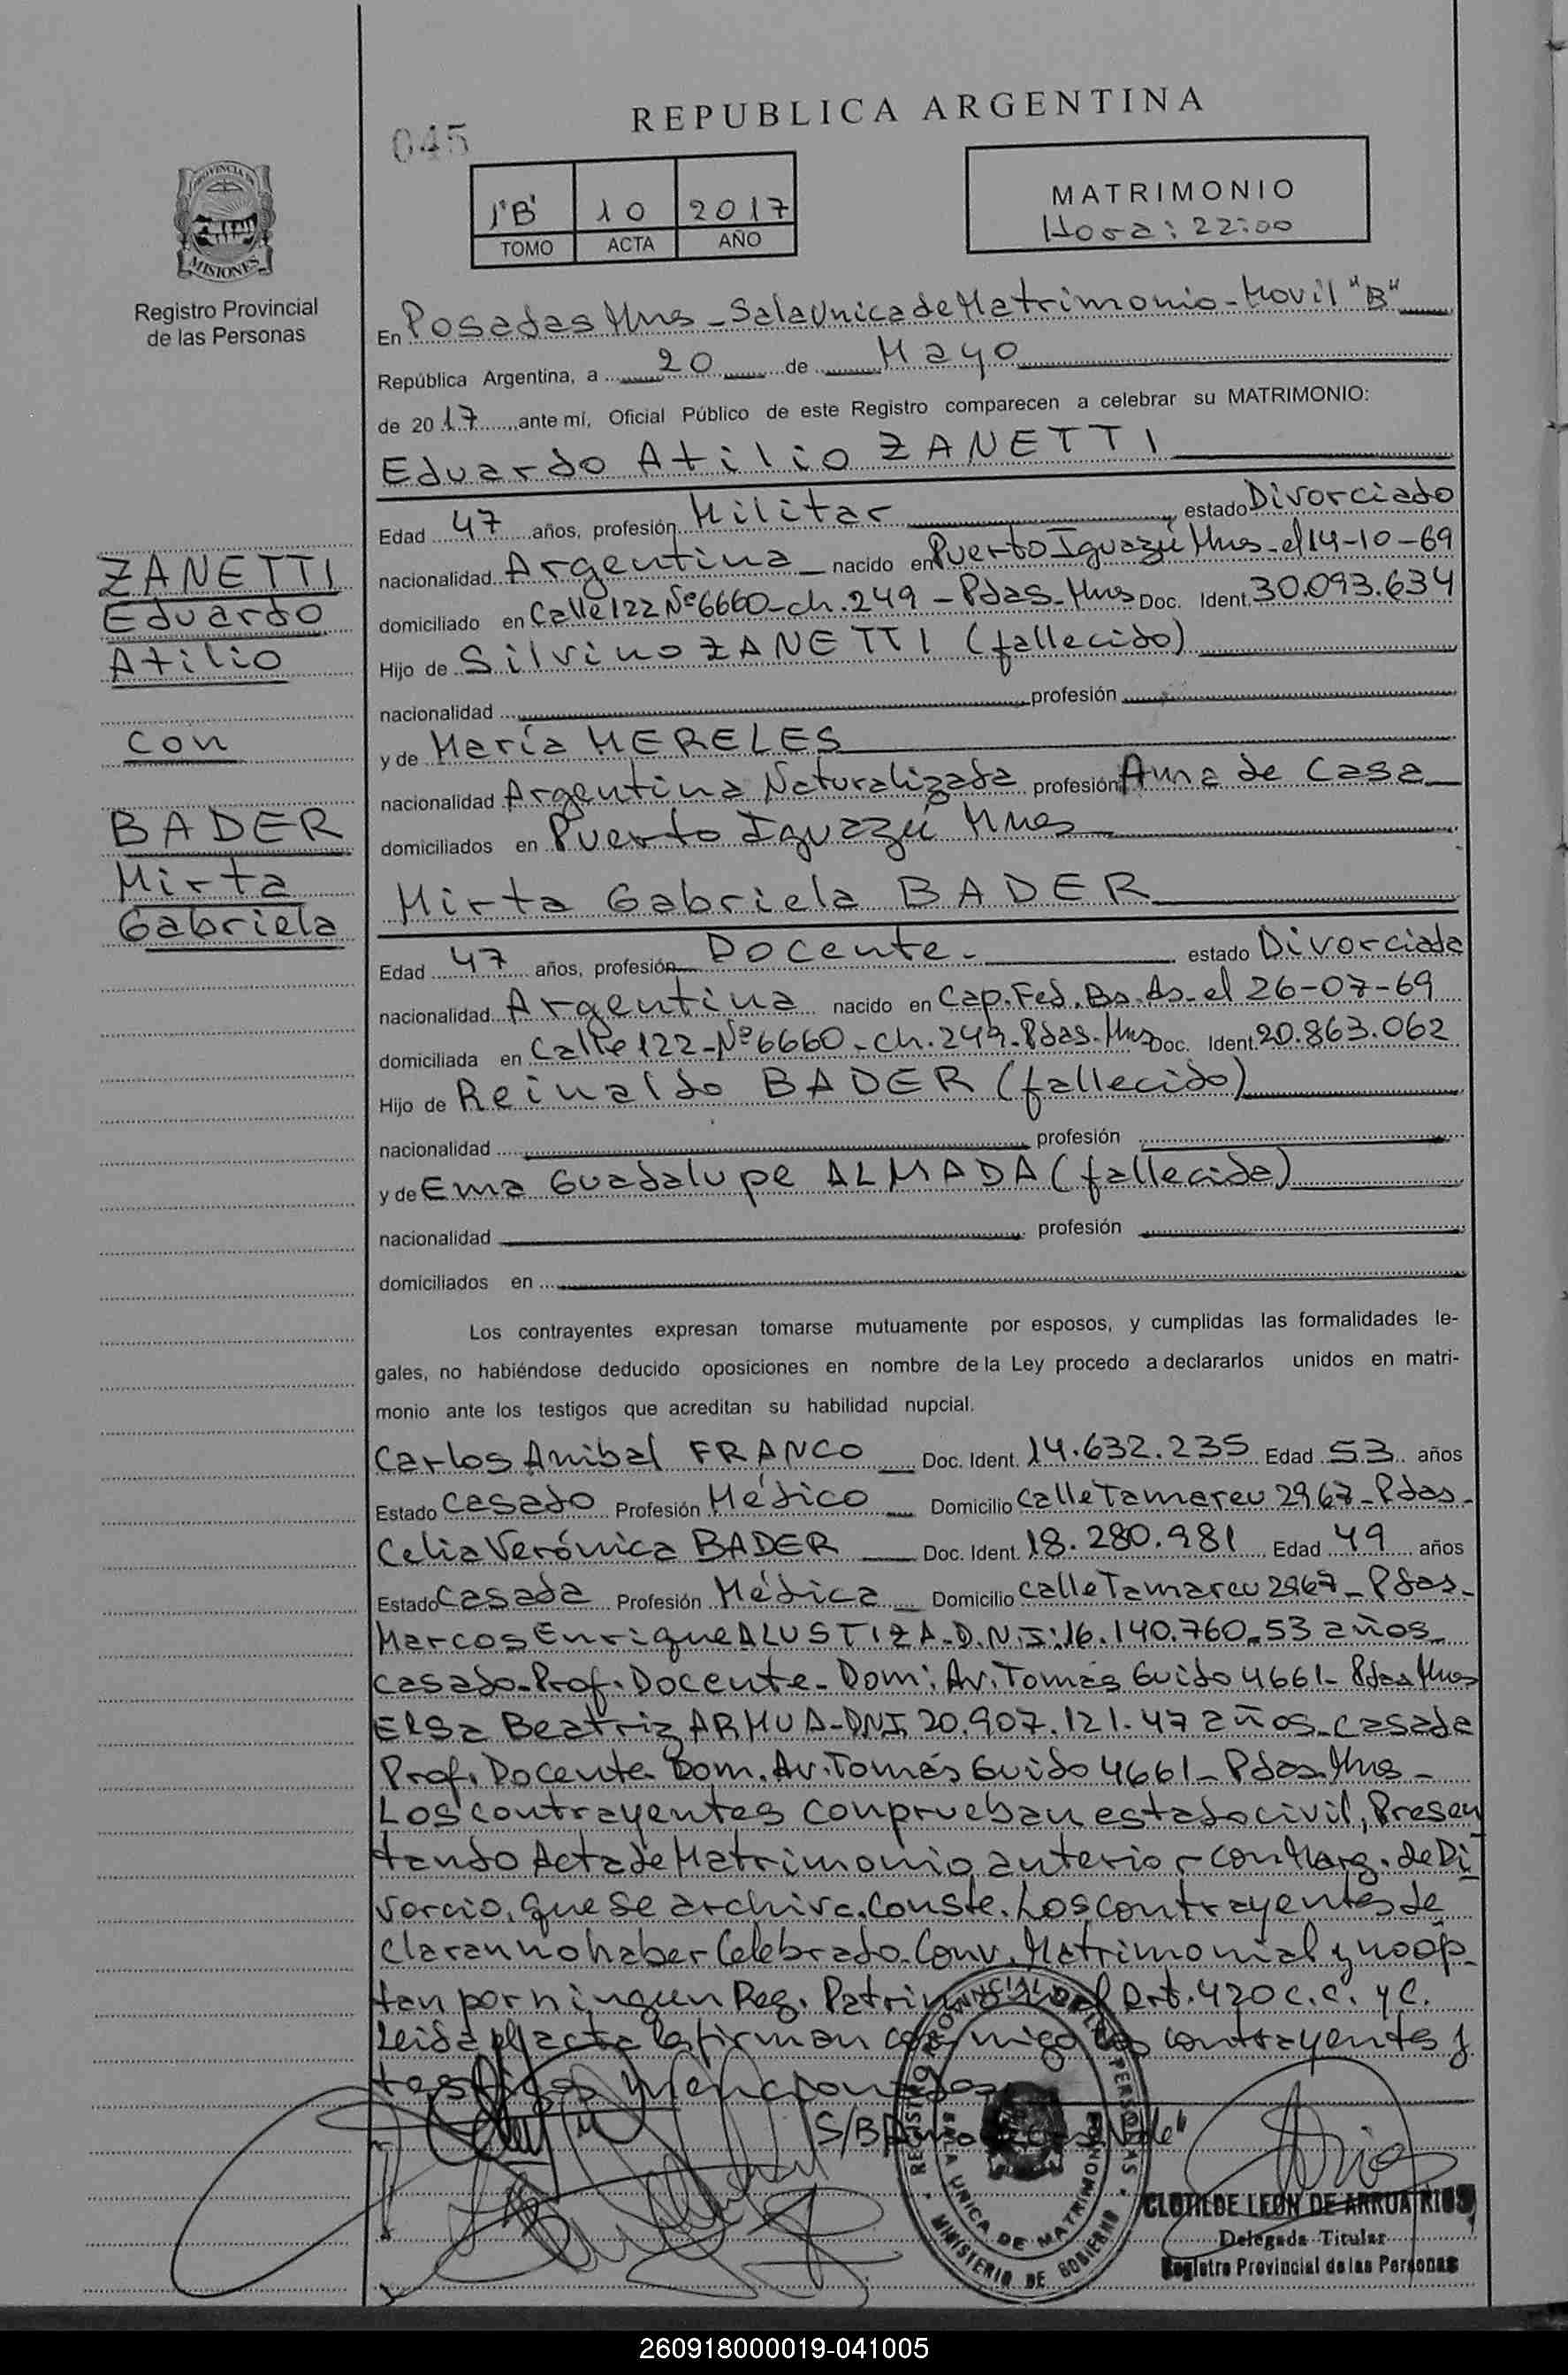 REPUBLICA ARGENTINA
045
PROVINCIA DE
MISIONES
Registro Provincial
de las Personas
1"B" 10 2017
TOMO ACTA AÑO
MATRIMONIO
Hora: 22:00
En Posadas Mnes - Sala Unica de Matrimonio - Movil "B"
República Argentina, a 20 de Mayo
de 2017 ante mí, Oficial Público de este Registro comparecen a celebrar su MATRIMONIO:
Eduardo Atilio ZANETTI
Edad 47 años, profesión Militar estado Divorciado
nacionalidad Argentina nacido en Puerto Iguazú Mnes - el 14-10-69
domiciliado en Calle 122 Nº 6660 - ch. 249 - Pdas - Mnes Doc. Ident. 30.093.634
Hijo de Silvino ZANETTI (fallecido)
nacionalidad profesión
y de María MERELES
nacionalidad Argentina Naturalizada profesión Ama de Casa
domiciliados en Puerto Iguazú Mnes
ZANETTI
Eduardo
Atilio
con
BADER
Mirta
Gabriela
Mirta Gabriela BADER
Edad 47 años, profesión Docente - estado Divorciada
nacionalidad Argentina nacido en Cap. Fed. Bs. As - el 26-07-69
domiciliada en Calle 122 - Nº 6660 - ch. 249 - Pdas - Mns Doc. Ident. 20.863.062
Hijo de Reinaldo BADER (fallecido)
nacionalidad profesión
y de Ema Guadalupe ALMADA (fallecida)
nacionalidad profesión
domiciliados en
Los contrayentes expresan tomarse mutuamente por esposos, y cumplidas las formalidades le-
gales, no habiéndose deducido oposiciones en nombre de la Ley procedo a declararlos unidos en matri-
monio ante los testigos que acreditan su habilidad nupcial.
Carlos Anibal FRANCO Doc. Ident. 14.632.235 Edad 53 años
Estado Casado Profesión Médico Domicilio Calle Tamareu 2967 - Pdas -
Celia Verónica BADER Doc. Ident. 18.280.981 Edad 49 años
Estado Casada Profesión Médica Domicilio calle Tamareu 2967 - Pdas -
Marcos Enrique ALUSTIZA - D.N.I: 16.140.760 - 53 años -
casado - Prof. Docente - Dom: Av. Tomás Guido 4661 - Pdas Mnes
Elsa Beatriz ARMUA - DNI. 20.907.121 - 47 años - casada
Prof. Docente Dom. Av. Tomás Guido 4661 - Pdas - Mns -
Los contrayentes conprueban estado civil, Presen
tando Acta de Matrimonio anterior con Marg. de Di
vorcio, que se archiva. Conste. Los contrayentes de
claran no haber Celebrado Conv. Matrimonial y no op
tan por ningun Reg. Patrimonial Art. 420 C.C. y C.
Leida el acta la firman conmigo los contrayentes y
testigos mencionados
S/B
REGISTRO PROVINCIAL DE LAS PERSONAS
SALA UNICA DE MATRIMONIO
MINISTERIO DE GOBIERNO
CLOTILDE LEON DE ARRUA RIOS
Delegada Titular
Registro Provincial de las Personas
260918000019-041005